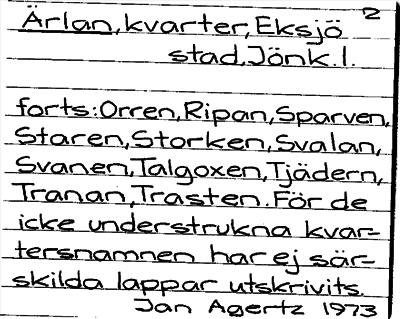 2
Ärlan, kvarter, Eksjö
stad, Jönk. l.
forts: Orren, Ripan, Sparven,
Staren, Storken, Svalan,
Svanen, Talgoxen, Tjädern,
Tranan, Trasten. För de
icke understrukna kvar=
tersnamnen har ej sär=
skilda lappar utskrivits.
Jan Agertz 1973